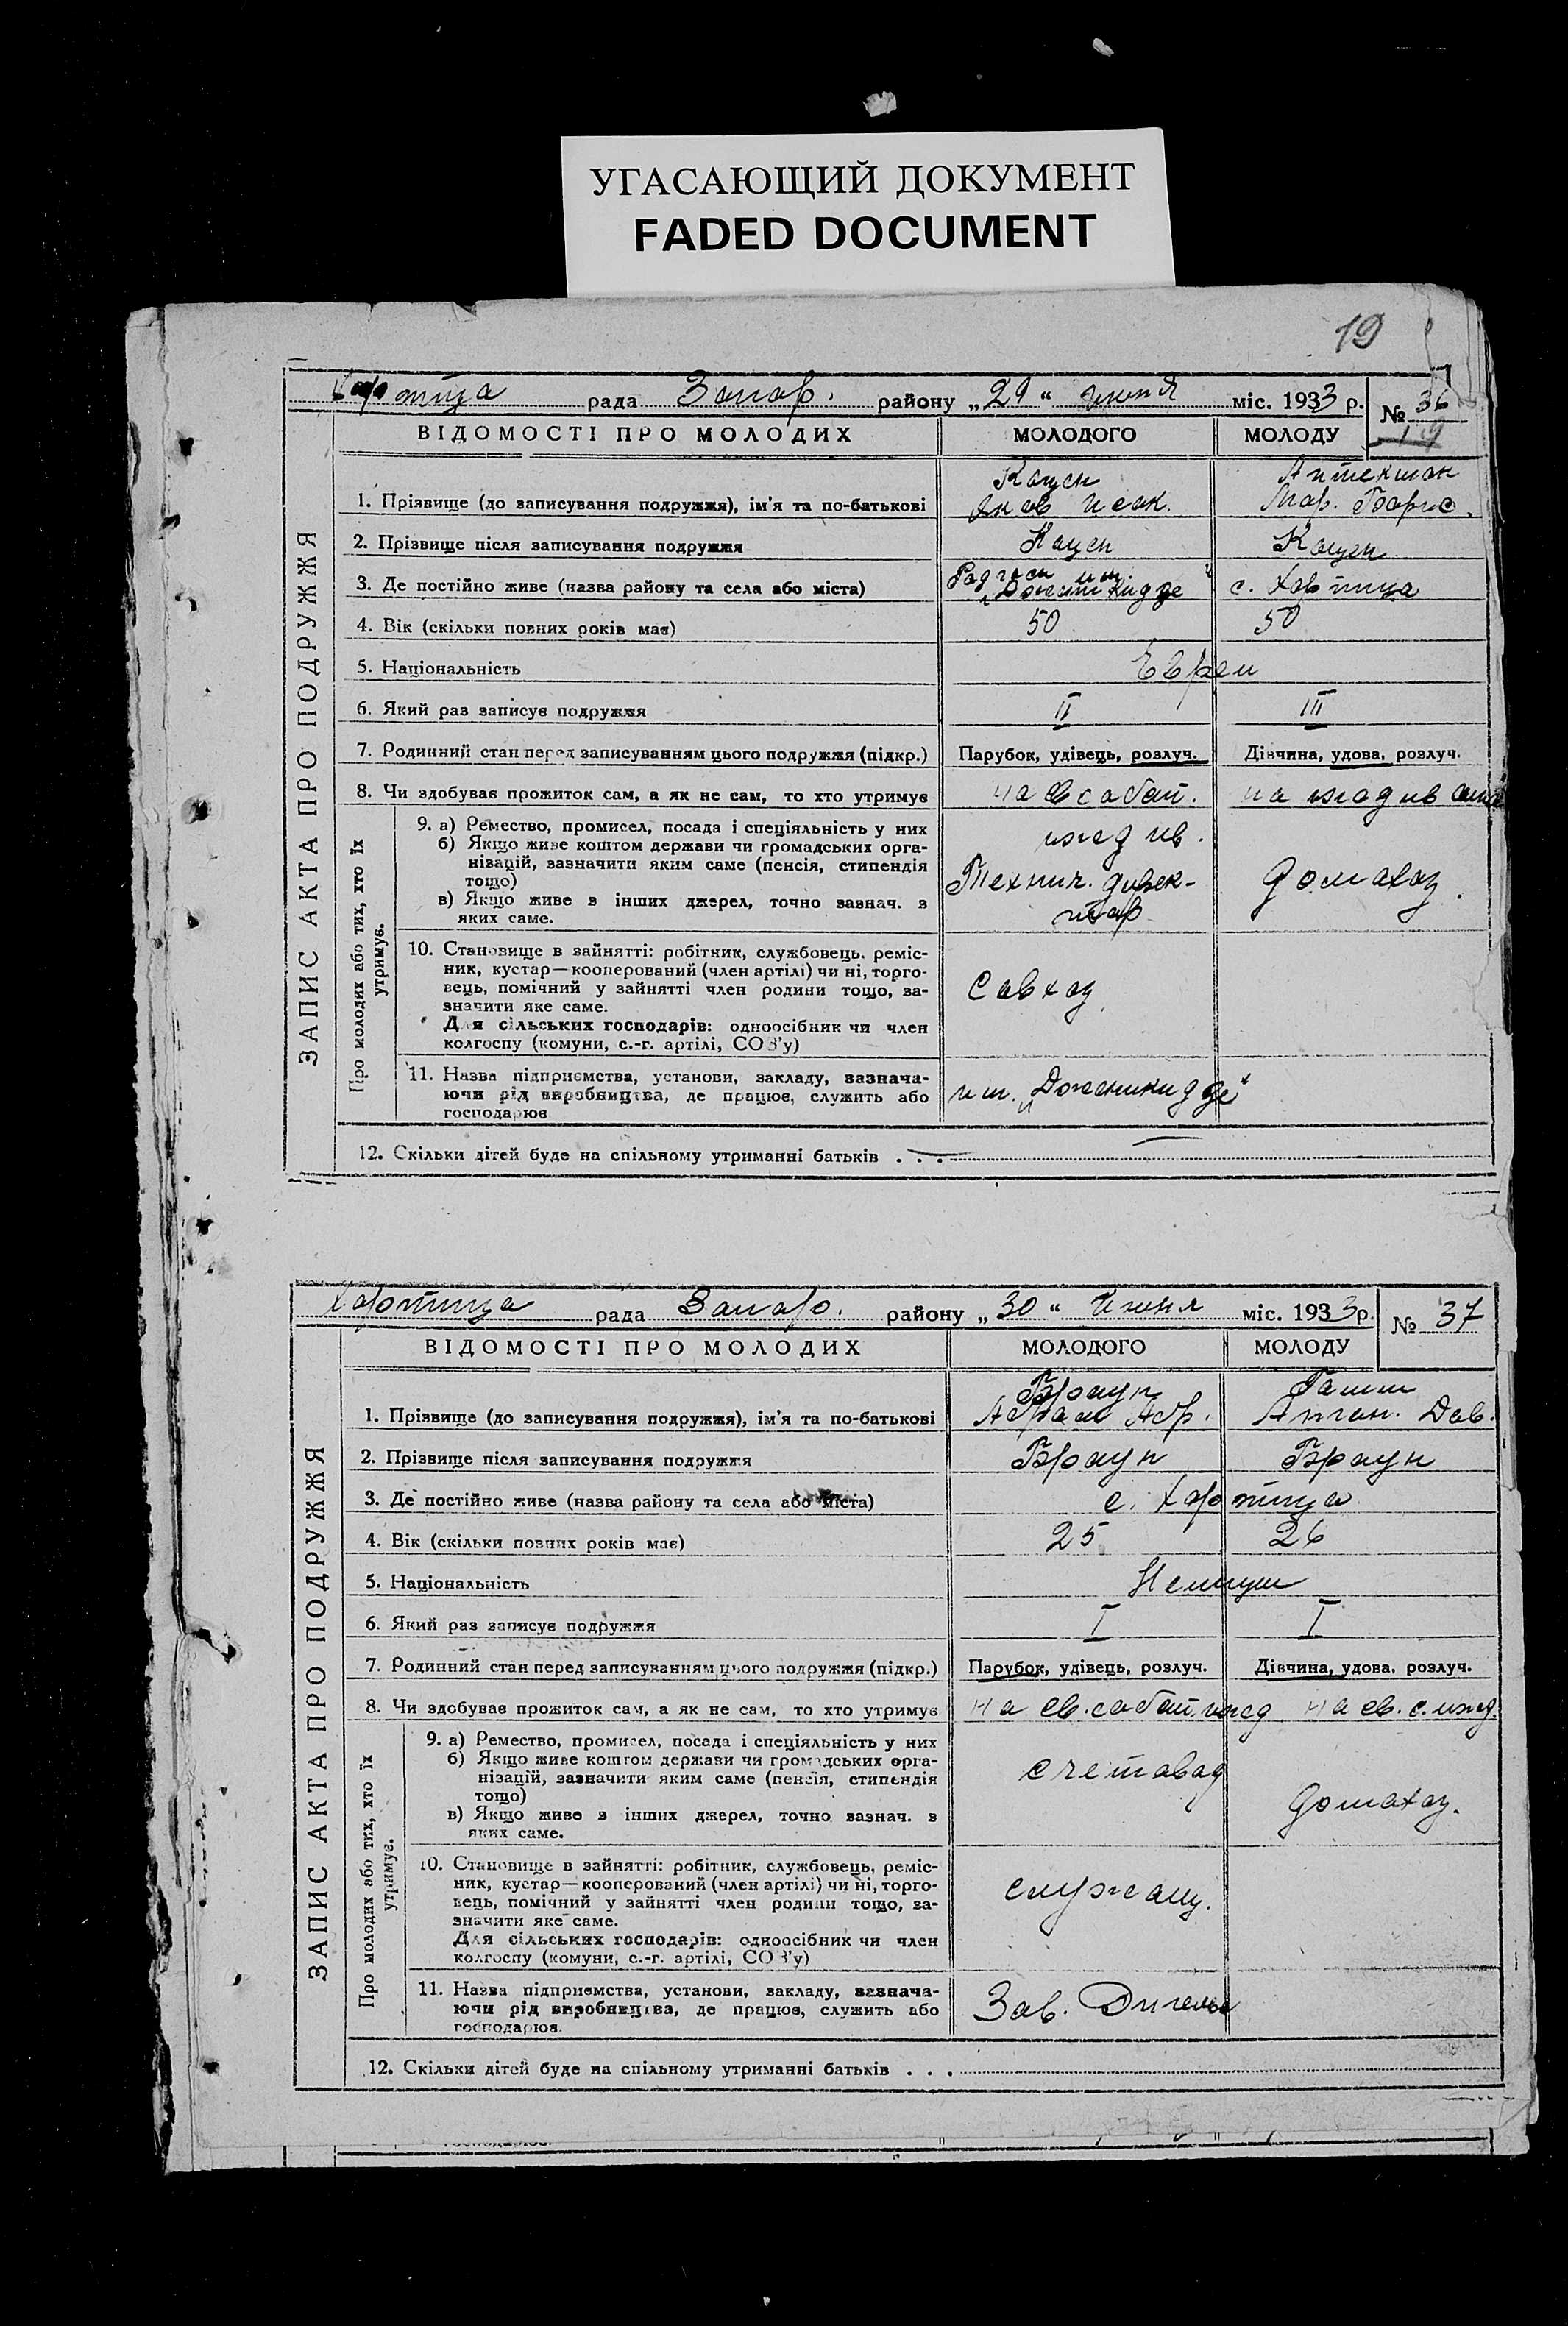 УГАСАЮЩИЙ ДОКУМЕНТ
FADED DOCUMENT
19
Хортица рада Запор. району „29“ июня міс. 1933 р. № 36
19
ВІДОМОСТІ ПРО МОЛОДИХ МОЛОДОГО МОЛОДУ
ЗАПИС АКТА ПРО ПОДРУЖЖЯ
Кацен Аптекман
1. Прізвище (до записування подружжя), ім'я та по-батькові Яков Исак. Мар. Борис.
2. Прізвище після записування подружжя Кацен Кацен
3. Де постійно живе (назва району та села або міста) им. с. Хортица
4. Вік (скільки повних років має) 50 50
5. Національність Евреи
6. Який раз записує подружжя II III
7. Родинний стан перед записуванням цього подружжя (підкр.) Парубок, удівець, розлуч. Дівчина, удова, розлуч.
8. Чи здобуває прожиток сам, а як не сам, то хто утримує на собст. на иждив
Про молодих або тих, хто їх
утримує.
9. а) Ремество, промисел, посада і спеціяльність у них
б) Якщо живе коштом держави чи громадських орга-
нізацій, зазначити яким саме (пенсія, стипендія
тощо)
в) Якщо живе з інших джерел, точно зазнач. з
яких саме.
иждив.
Технич. дирек-
тор
домахоз.
10. Становище в зайнятті: робітник, службовець, реміс-
ник, кустар—кооперований (член артілі) чи ні, торго-
вець, помічний у зайнятті член родини тощо, за-
значити яке саме.
Для сільських господарів: одноосібник чи член
колгоспу (комуни, с.-г. артілі, СОЗ'у)
Совхоз.
11. Назва підприємства, установи, закладу, зазнача-
ючи рід виробництва, де працює, служить або
господарює
им.
12. Скільки дітей буде на спільному утриманні батьків . . . —
Хортица рада Запор. району „30“ Июня міс. 1933 р. № 37
ВІДОМОСТІ ПРО МОЛОДИХ МОЛОДОГО МОЛОДУ
ЗАПИС АКТА ПРО ПОДРУЖЖЯ
Браун
1. Прізвище (до записування подружжя), ім'я та по-батькові Абрам Абр. Дав.
2. Прізвище після записування подружжя Браун Браун
3. Де постійно живе (назва району та села або міста) с. Хортица
4. Вік (скільки повних років має) 25 26
5. Національність Немцы
6. Який раз записує подружжя I I
7. Родинний стан перед записуванням цього подружжя (підкр.) Парубок, удівець, розлуч. Дівчина, удова, розлуч.
8. Чи здобуває прожиток сам, а як не сам, то хто утримує на св. собст. ижд на св. с. ижд.
Про молодих або тих, хто їх
утримує.
9. а) Ремество, промисел, посада і спеціяльність у них
б) Якщо живе коштом держави чи громадських орга-
нізацій, зазначити яким саме (пенсія, стипендія
тощо)
в) Якщо живе з інших джерел, точно зазнач. з
яких саме.
счетовод
домахоз.
10. Становище в зайнятті: робітник, службовець, реміс-
ник, кустар—кооперований (член артілі) чи ні, торго-
вець, помічний у зайнятті член родини тощо, за-
значити яке саме.
Для сільських господарів: одноосібник чи член
колгоспу (комуни, с.-г. артілі, СОЗ'у)
служащ.
11. Назва підприємства, установи, закладу, зазнача-
ючи рід виробництва, де працює, служить або
господарює.
Зав.
12. Скільки дітей буде на спільному утриманні батьків . . .